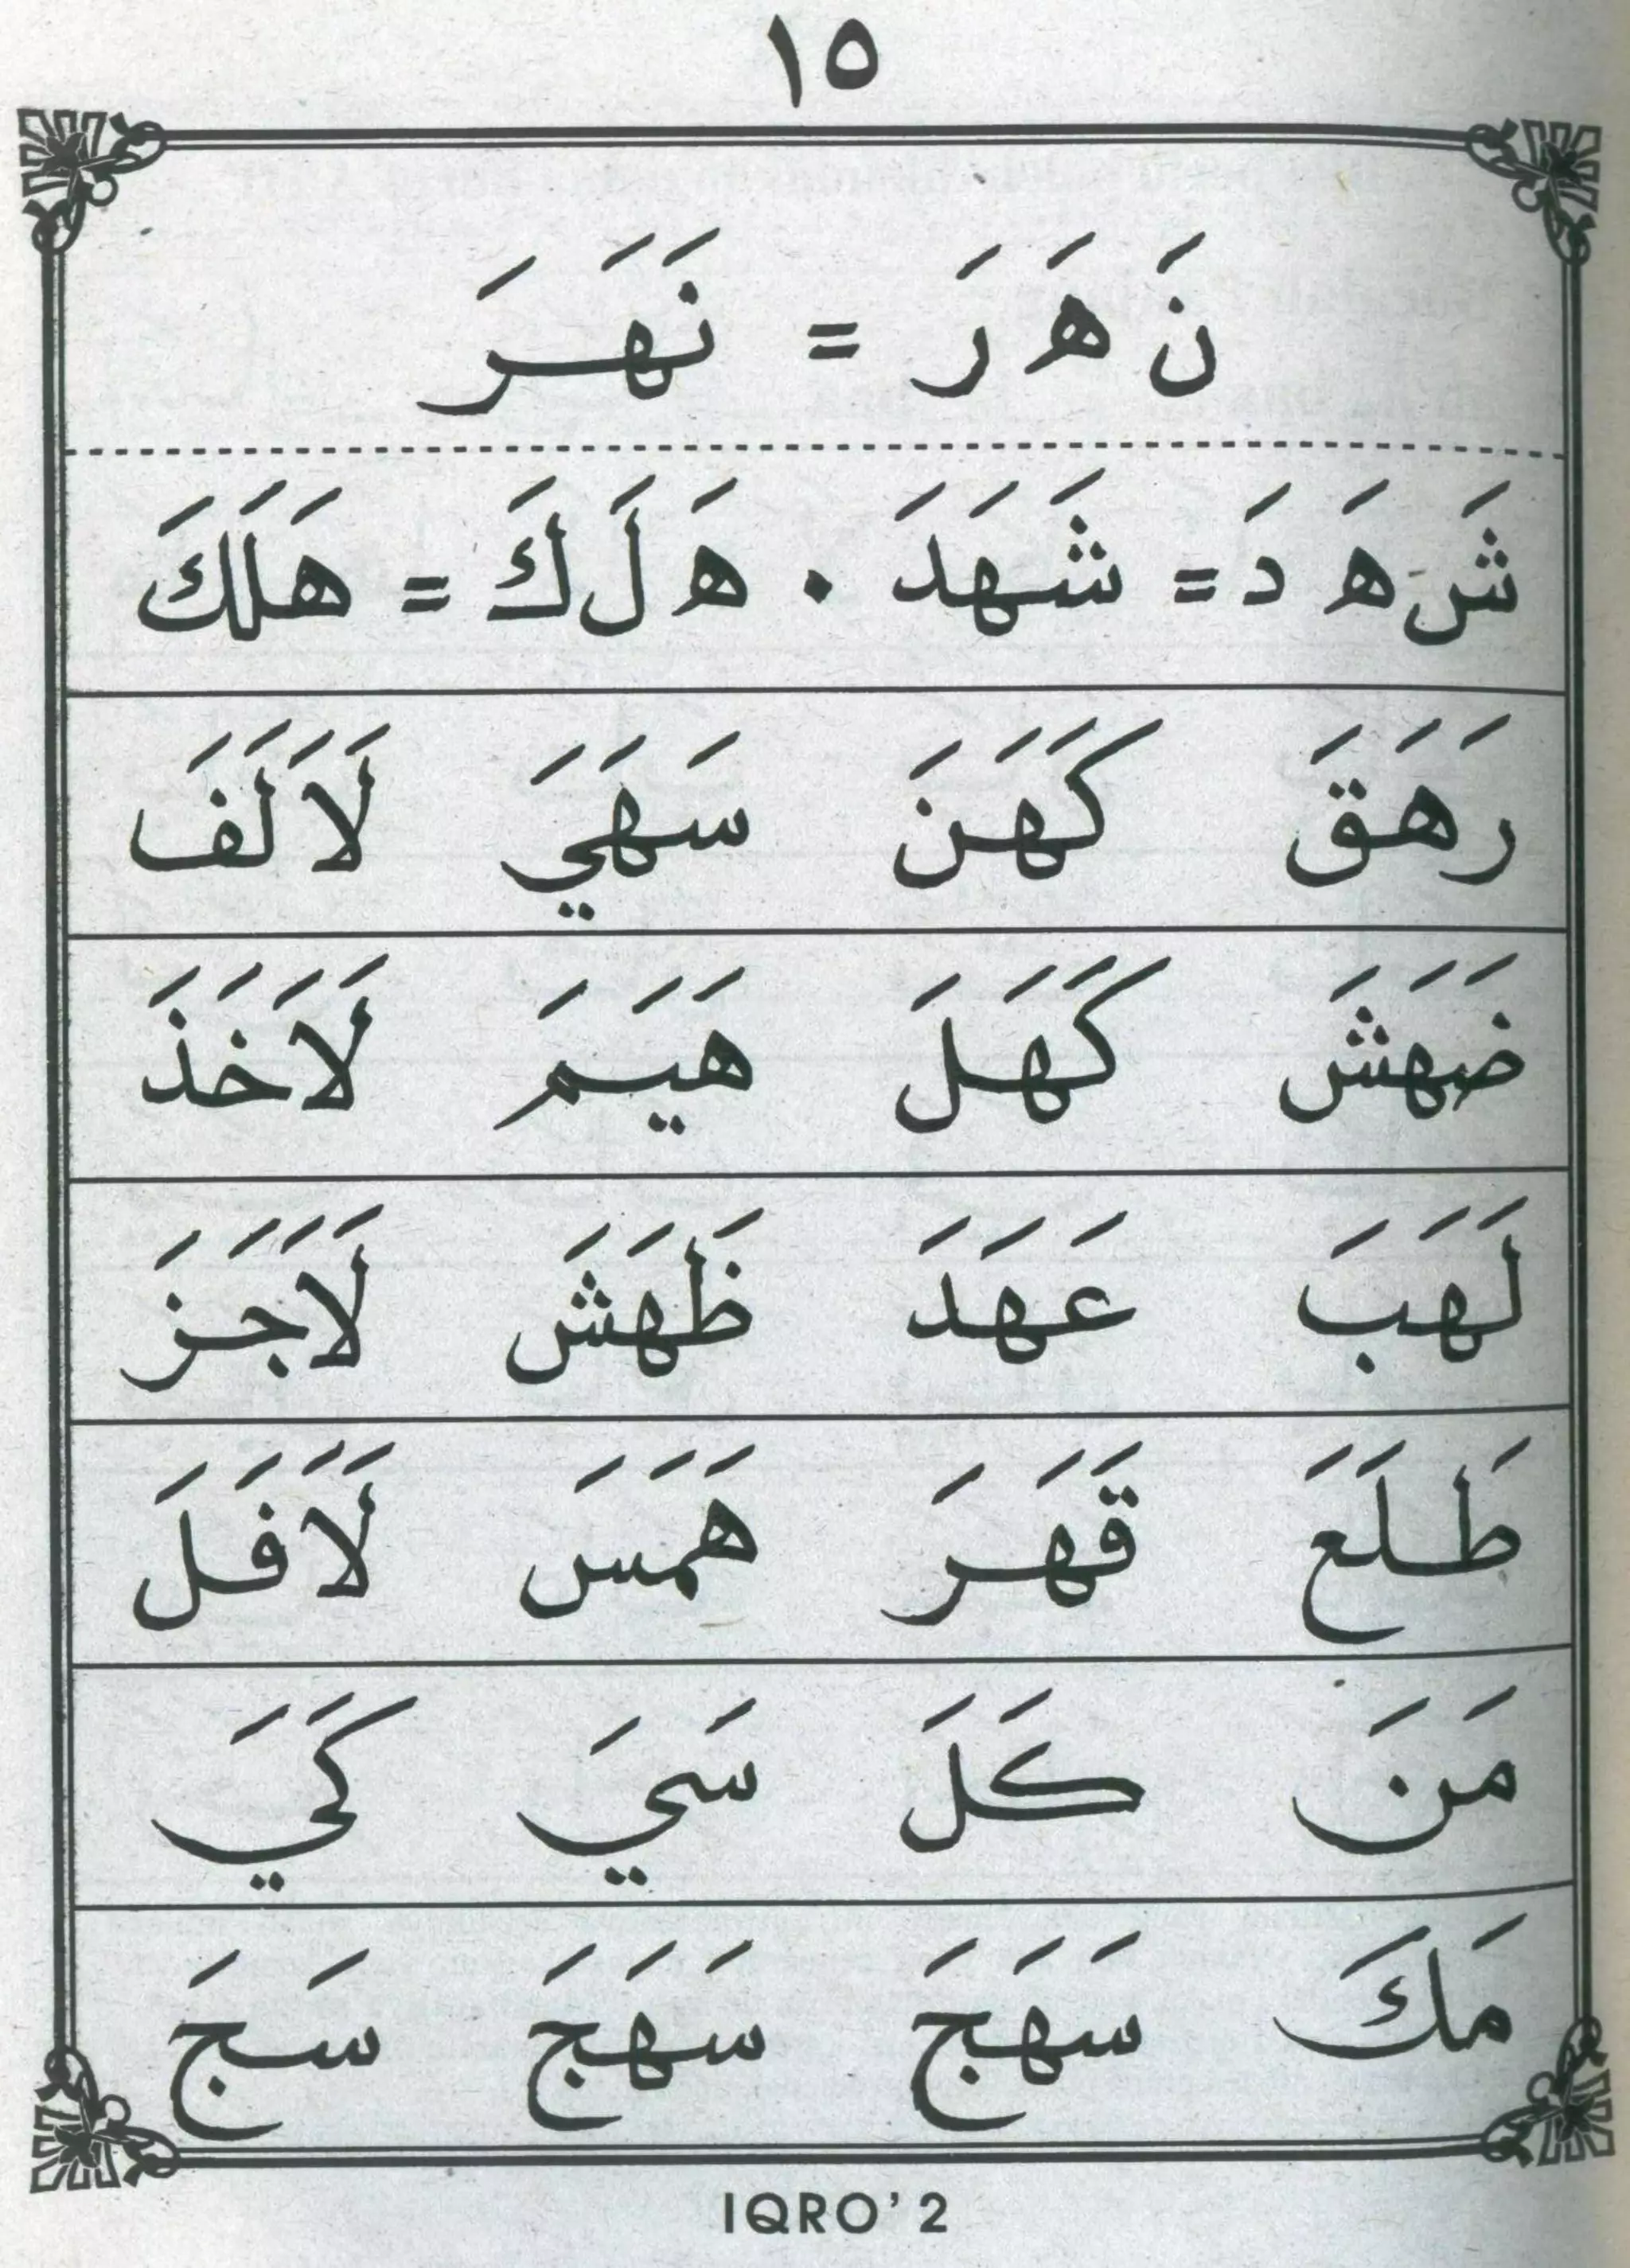 ١٥
نَ هَ رَ = نَهَرَ
شَ هَ دَ = شَهَدَ • هَ لَ كَ = هَلَكَ
رَهَقَ كَهَنَ سَهَيَ لَاَلَفَ
ضَهَشَ كَهَلَ هَيَمَ لَاَخَذَ
لَهَبَ عَهَدَ ظَهَشَ لَاَجَزَ
طَلَعَ قَهَرَ هَمَسَ لَاَفَلَ
مَنَ كَلَ سَيَ كَيَ
مَكَ سَهَجَ سَهَجَ سَجَ
IQRO' 2